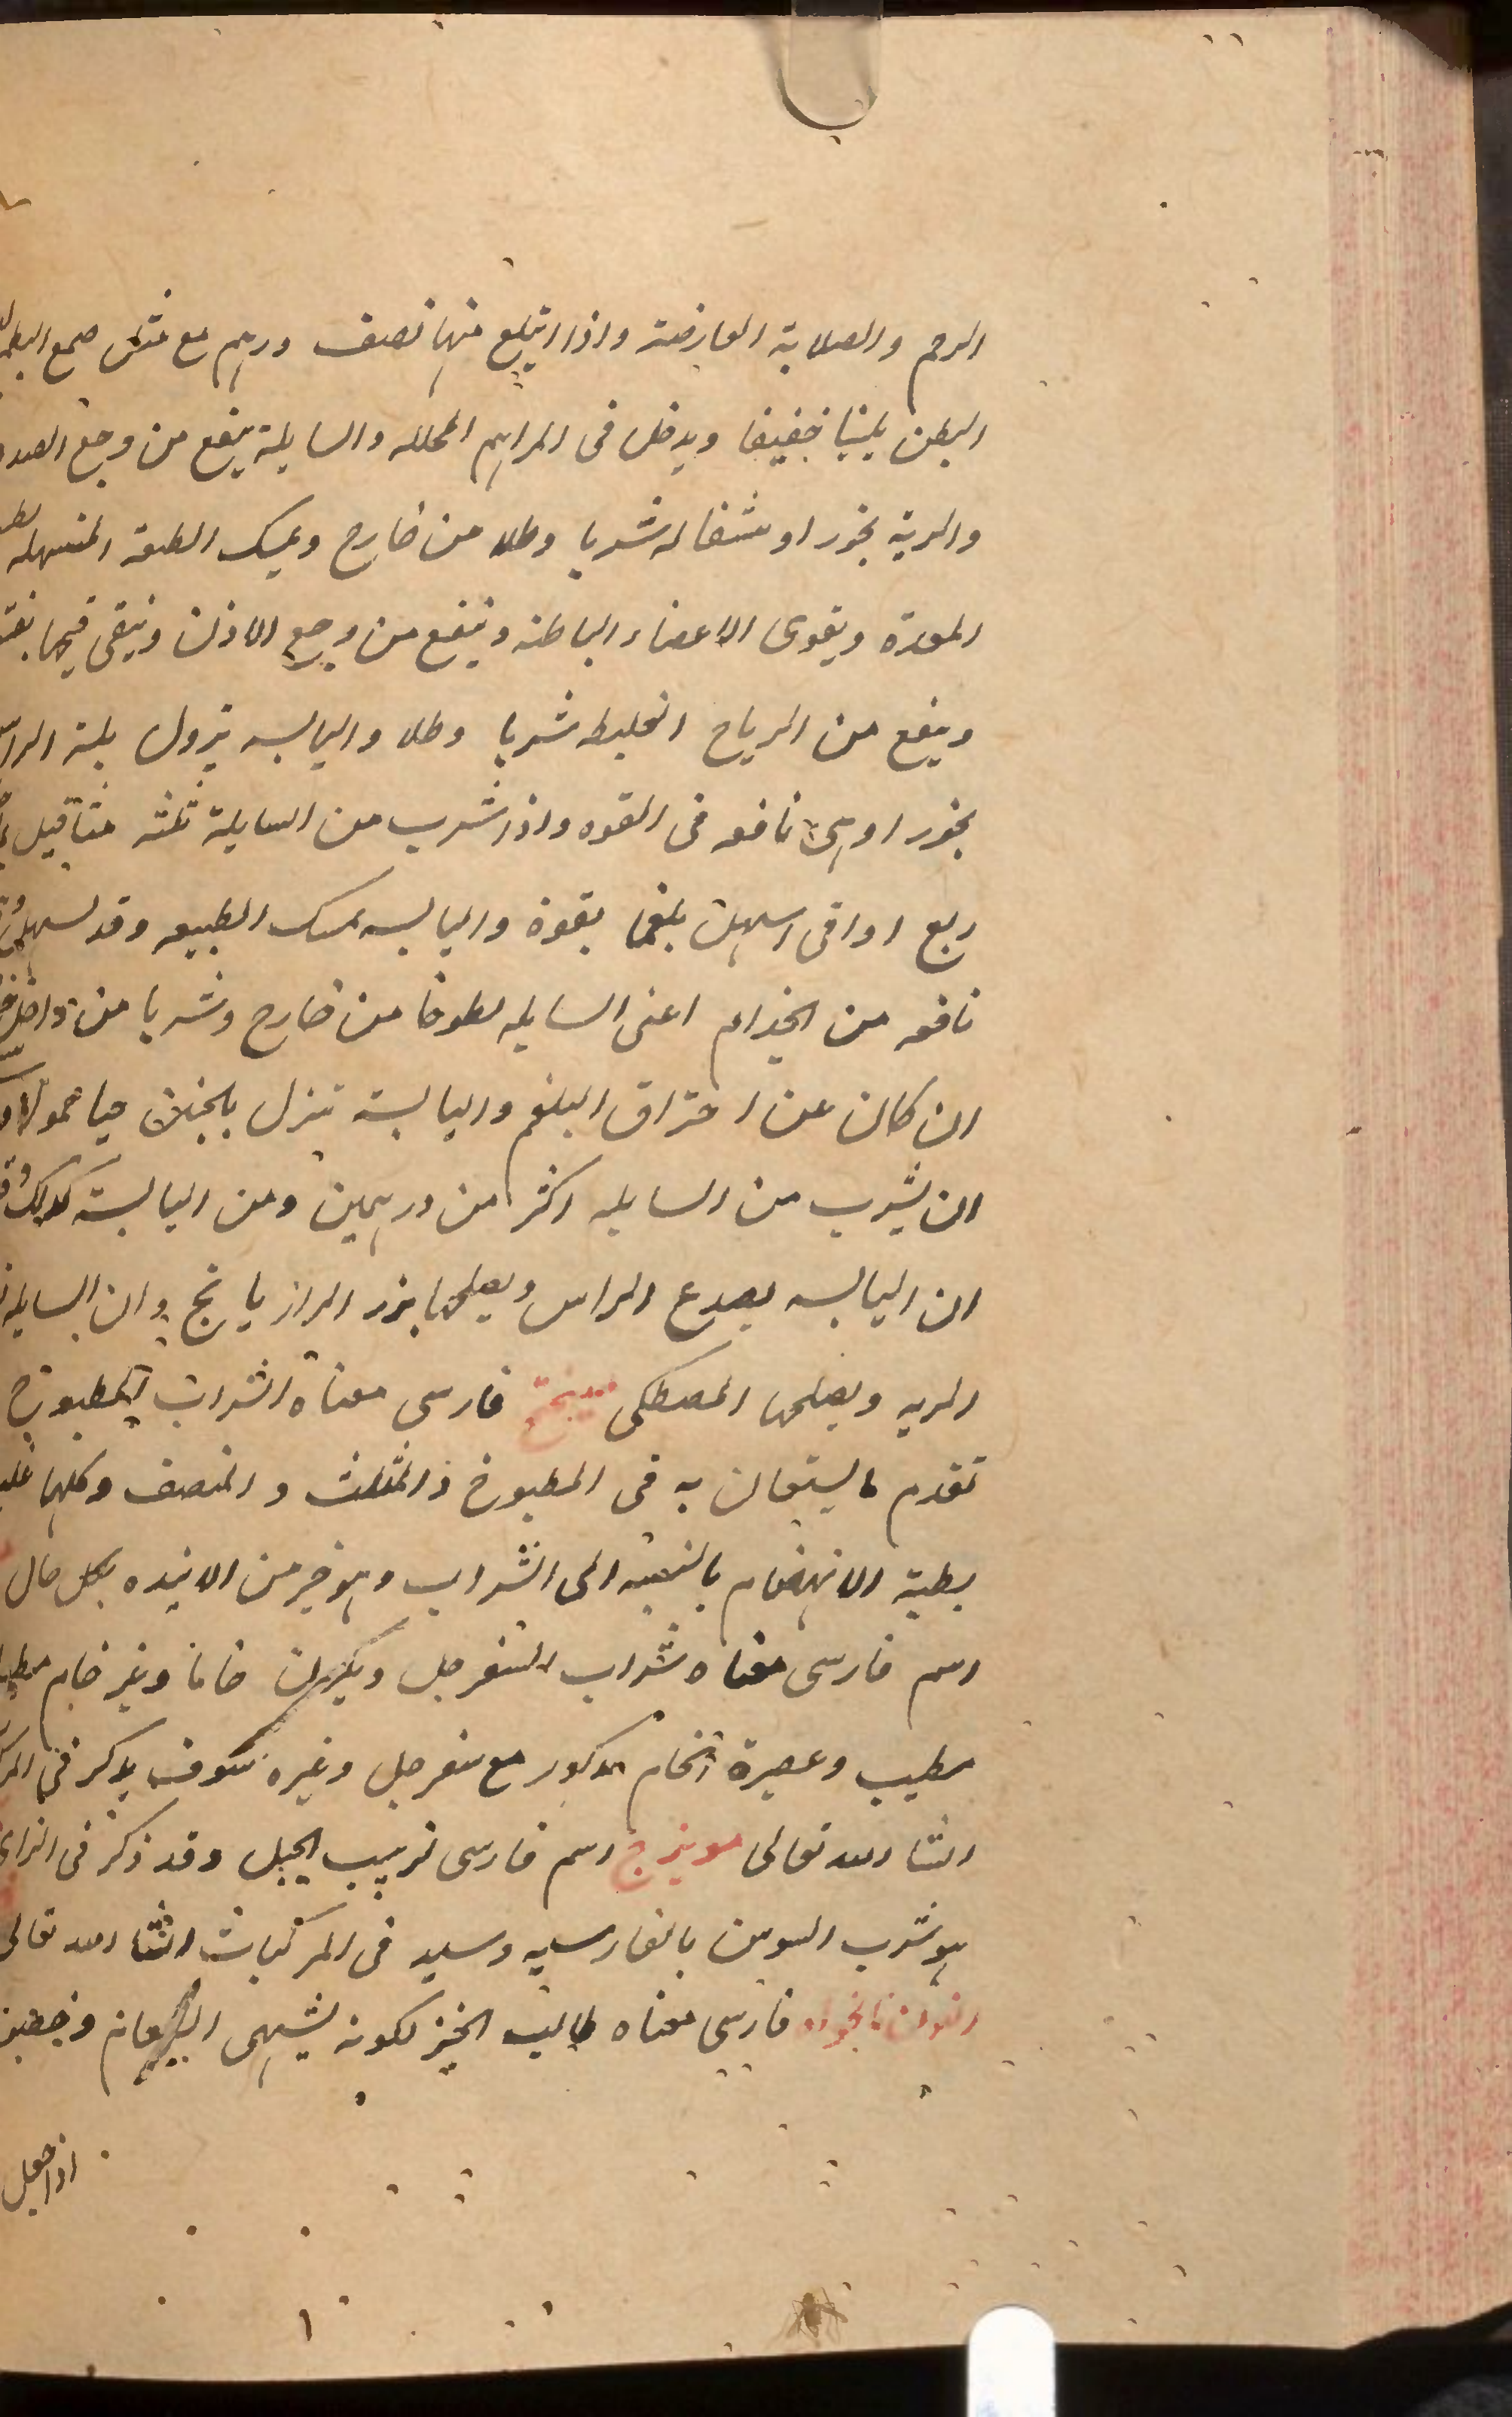 الرحم والصلابة العارضة واذا ابتلع منها نصف درهم مع مثله صمغ البطم
البطن تليينا خفيفا ويدخل فى المراهم المحلله والسايلة ينفع من وجع الصدر
والرية بخورا و شربا وطلا من خارج ويمسك الطبيعة المنسهله
المعدة ويقوى الاعضاء الباطنه وينفع من وجع الاذن وينقى قيحها
وينفع من الرياح الغليظه شربا وطلا واليابسه تزول بلة الراس
بخورا وهى نافعه فى اللقوه واذا شرب من السايلة ثلثه مثاقيل
ربع اواقى اسهلت بلغما بقوة واليابسه تمسك الطبيعه وقد
نافعه من الجذام اعنى السايله لطوخا من خارج وشربا من داخل
ان كان عن احتراق البلغم واليابسة تنزل بالجنين حيا حمولا
ان يشرب من السايله اكثر من درهمين ومن اليابسة كذلك
ان اليابسه يصدع الراس ويصلحها بزر الرازيانج وان السايله
الريه ويصلحها المصطكى فارسى معناه الشراب المطبوخ
تقدم ما يستعان به فى المطبوخ والمثلث والمنصف وكلها
بطية الانهضام بالنسبه الى الشراب وهو خير من الانبذه بكل حال
اسم فارسى معناه شراب السفرجل ويكون خاما وغير خام
مطيب وعصيرة الخام المذكور مع سفرجل وغيره سوف يذكر فى
انشا الله تعالى ميويزج اسم فارسى زبيب الجبل وقد ذكر فى الزاى
هو شرب السوس بالفارسيه وسيد فى المركبات انشا الله تعالى
النون نانخواه فارسى معناه طالب الخبز لكونه يشهى الطعام
اذا جعل